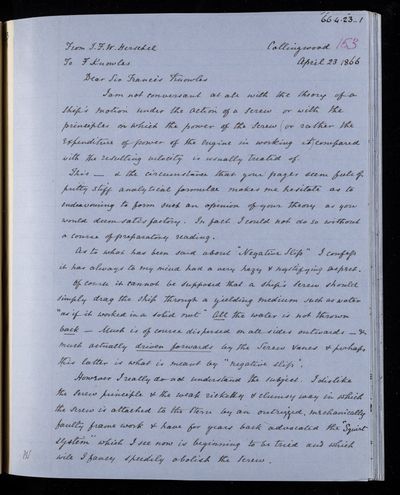 66.4.23_1
153
From J.F.W. Herschel Collingwood
To F. Knowles April 23 1866
Dear Sir Francis Knowles
I am not conversant at all with the theory of a
ship's motion under the action of a screw or with the
principles on which the power of the Screw (or rather the
expenditure of power of the engine in working it, compared
with the resulting velocity is usually treated of.
This — & the circumstance that your pages seem full of
putty stiff analytical formulae makes me hesitate as to
endeavouring to form such an opinion of your theory as you
would deem satisfactory. In fact I could not do so without
a course of preparatory reading.
As to what has been said about "Negative Slip" I confess
it has always to my mind had a very hazy & mystifying aspect.
Of course it cannot be supposed that a ship's screw should
simply drag the ship through a yielding medium such as water
"as if it worked in a solid nut" All the water is not thrown
back — Much is of course dispersed on all sides outwards — &
much actually driven forwards by the Screw vanes & perhaps
this latter is what is meant by "negative slip".
However I really do not understand the subject. I dislike
the Screw principle & the weak ricketty & clumsy way in which
the Screw is attached to the Stern by an outrigged, mechanically
faulty frame work & have for years back advocated the "Squirt
system" which I see now is beginning to be tried and which
will I fancy speedily abolish the Screw.